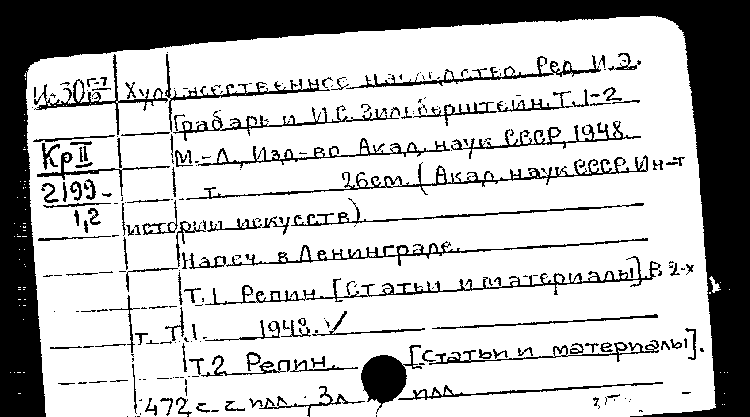 Ис30 Г-7/19 Художественное наследство. Ред. И.Э.
Грабарь и И.С. Зильберштейн. Т. 1-2
Кр II М.-Л., Изд-во Акад. наук СССР, 1948.
2199- т. 26см. (Акад. наук СССР. Ин-т
1,2 истории искусств).
Напеч. в Ленинграде.
Т.1. Репин. [Статьи и материалы]. В 2-х
т. Т.1. 1948. ✓
Т.2 Репин. [Статьи и материалы].
472 с. с илл.; 3л. илл.